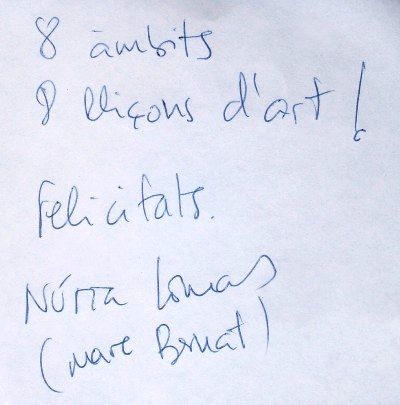 8 àmbits
8 lliçons d'art!
Felicitats.
Núria Lomas
(mare Bernat)